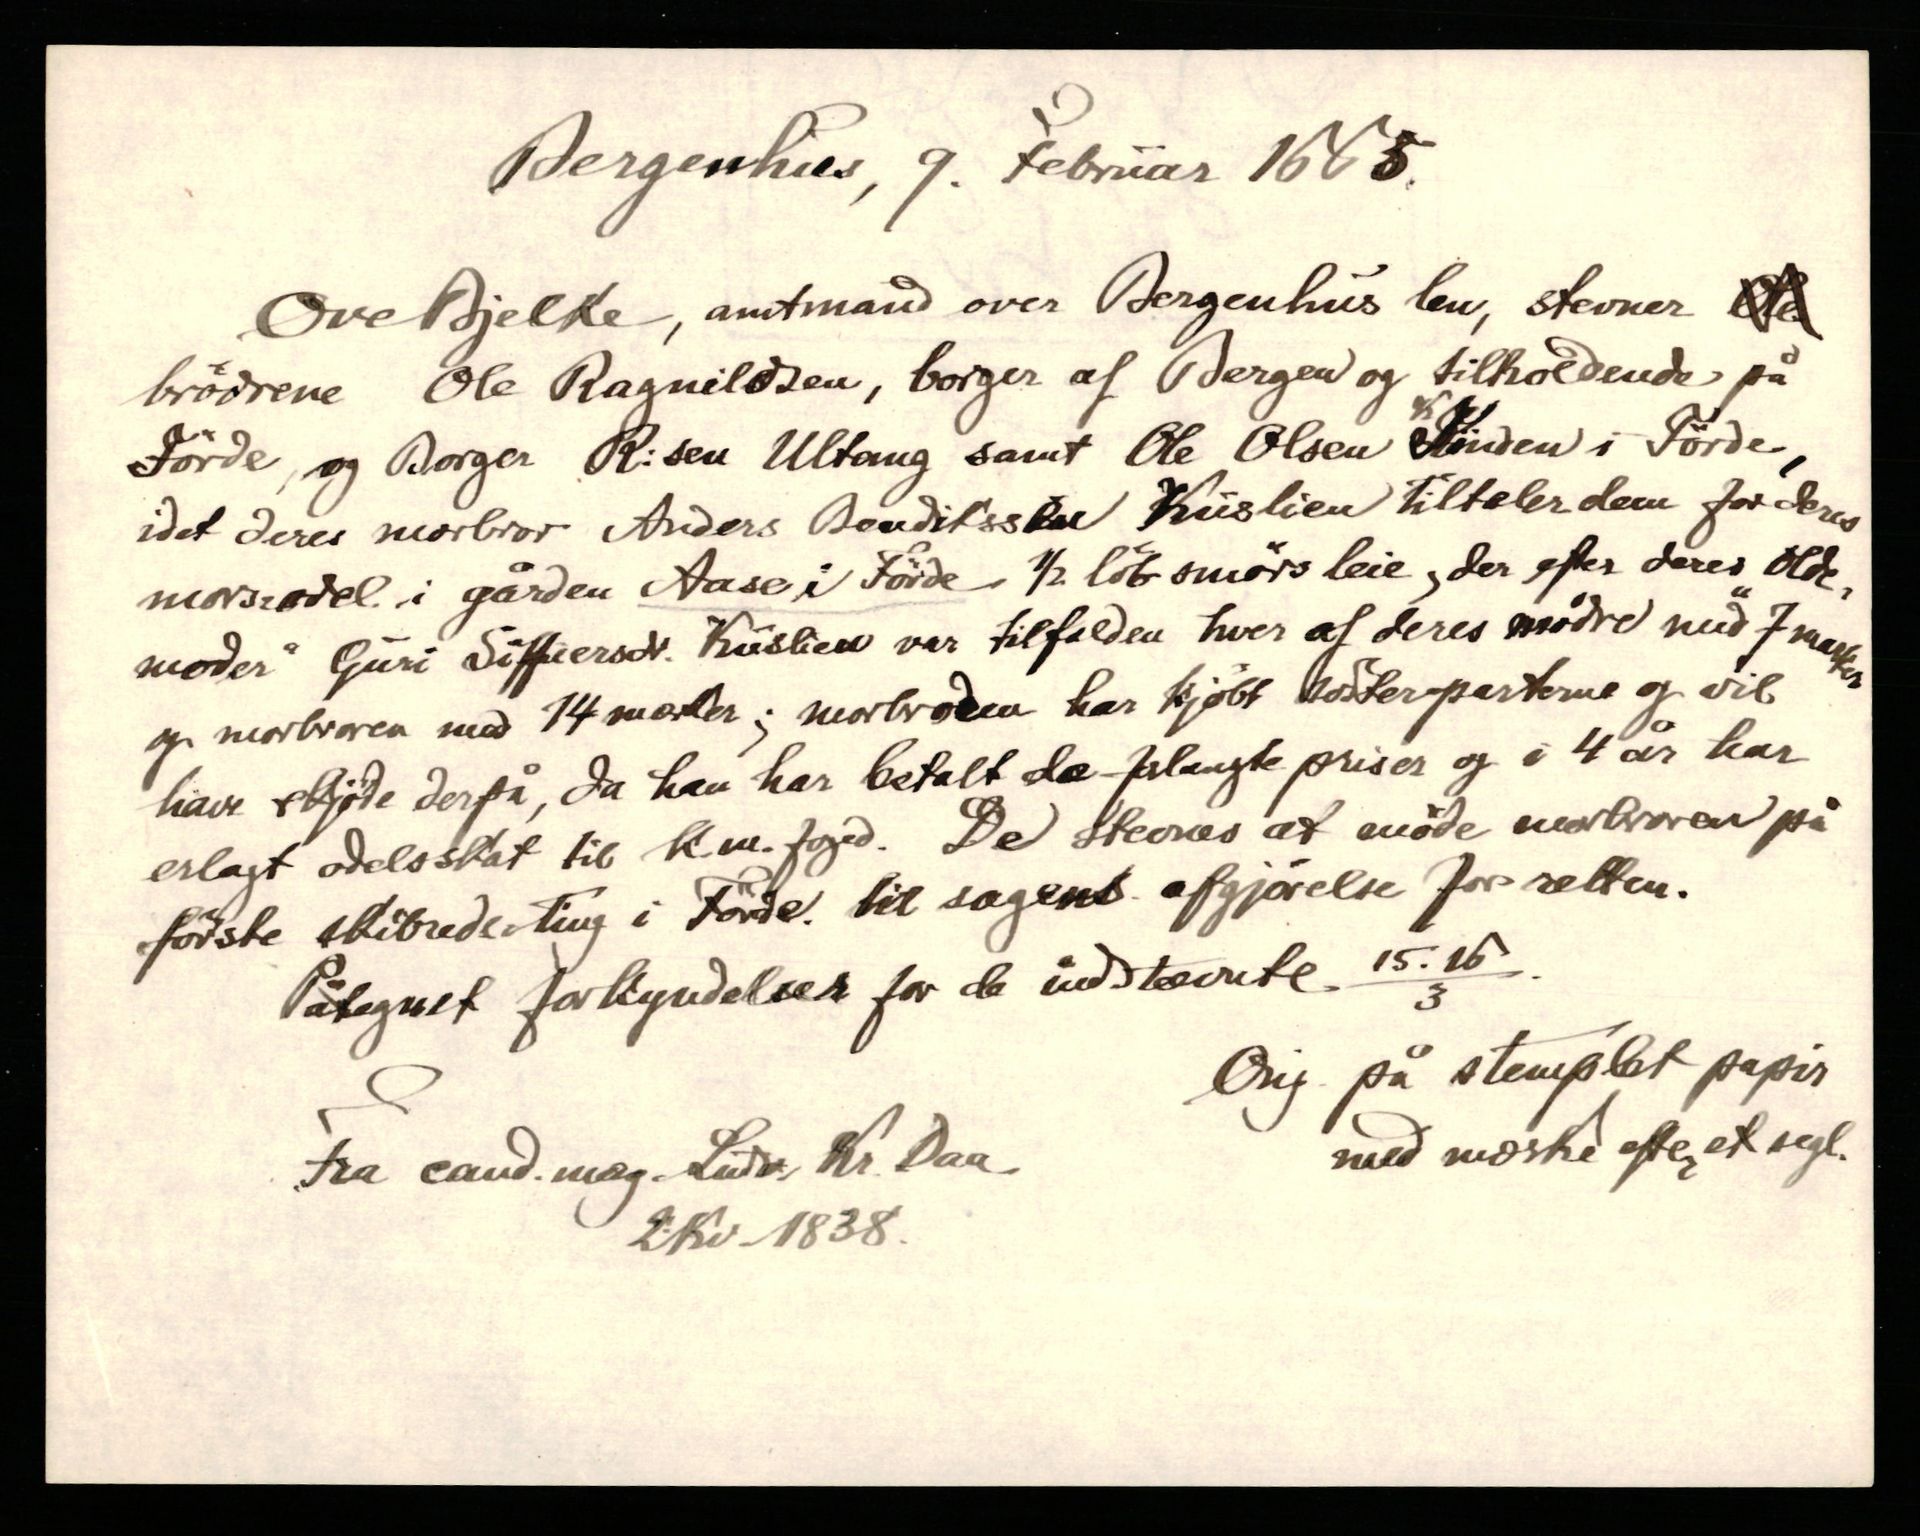 Bergenhus, 9. Februar 1665.
Ove Bjelke, amtmand over Bergenhus len, stevner
brödrene Ole Ragnildsen, borger af Bergen og tilholdende på
Förde, og Borger R:sen Ultang samt Ole Olsen Kinden i Förde,
idet deres morbror Anders Benditssen Kuslien tiltaler dem for deres
morsodel i gården Aase i Förde ½ löb smörs leie, der efter deres "olde-
moder" Guri Siffuersdr. Kuslien var tilfalden hver af deres mödre med 7 marker
og morbroren med 14 marker; morbroren har kjöbt sösterparterne og vil
have skjöde derpå, da han har betalt de forlangte priser og i 4 år har
erlagt odelsskat til k.m. foged. De stevnes at möde morbroren på
förste skibrede-ting i Förde til sagens afgjörelse for retten.
Påtegnet forkyndelser for de indstævnte 15. 16/3.
Orig. på stemplet papir
med mærke efter et segl.
Fra cand. mag. Ludv. Kr. Daa
2 Kv. 1838.